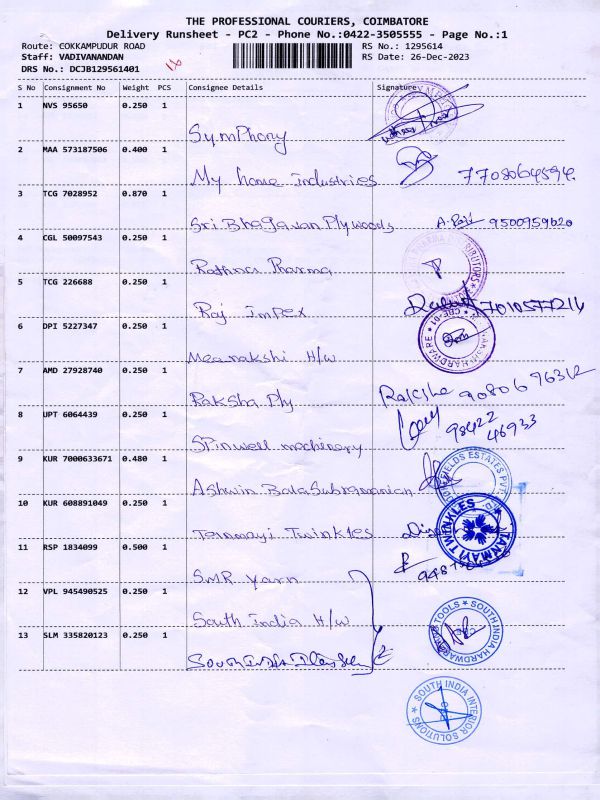 THE PROFESSIONAL COURIERS, COIMBATORE
Delivery Runsheet - PC2 - Phone No.:0422-3505555 - Page No.:1
Route: COKKAMPUDUR ROAD RS No.: 1295614
Staff: VADIVANANDAN RS Date: 26-Dec-2023
DRS No.: DCJB129561401
S No Consignment No Weight PCS Consignee Details Signature
1 NVS 95650 0.250 1
Symphony
2 MAA 573187506 0.400 1
My home Industries 7708064594
3 TCG 7028952 0.870 1
Sri Bhagavan Plywoods 9500959620
4 CGL 50097543 0.250 1
Rathna Pharma
PHARMA DISTRIBUTORS
5 TCG 226688 0.250 1
Raj Impex 7010577214
6 DPI 5227347 0.250 1
Meenakshi H/w
HARDWARE CBE-01
7 AMD 27928740 0.250 1
Raksha Ply Raksha
8 UPT 6064439 0.250 1
Spinwell machinery 98422 46933
9 KUR 7000633671 0.480 1
Ashwin Balasubramanian
FIELDS ESTATES PVT.
10 KUR 608891049 0.250 1
Twinkles
TANMAYI TWINKLES
11 RSP 1834099 0.500 1
SMR yarn
12 VPL 945490525 0.250 1
South India H/w
SOUTH INDIA HARDWARE TOOLS
13 SLM 335820123 0.250 1
South India
SOUTH INDIA INTERIOR SOLUTIONS